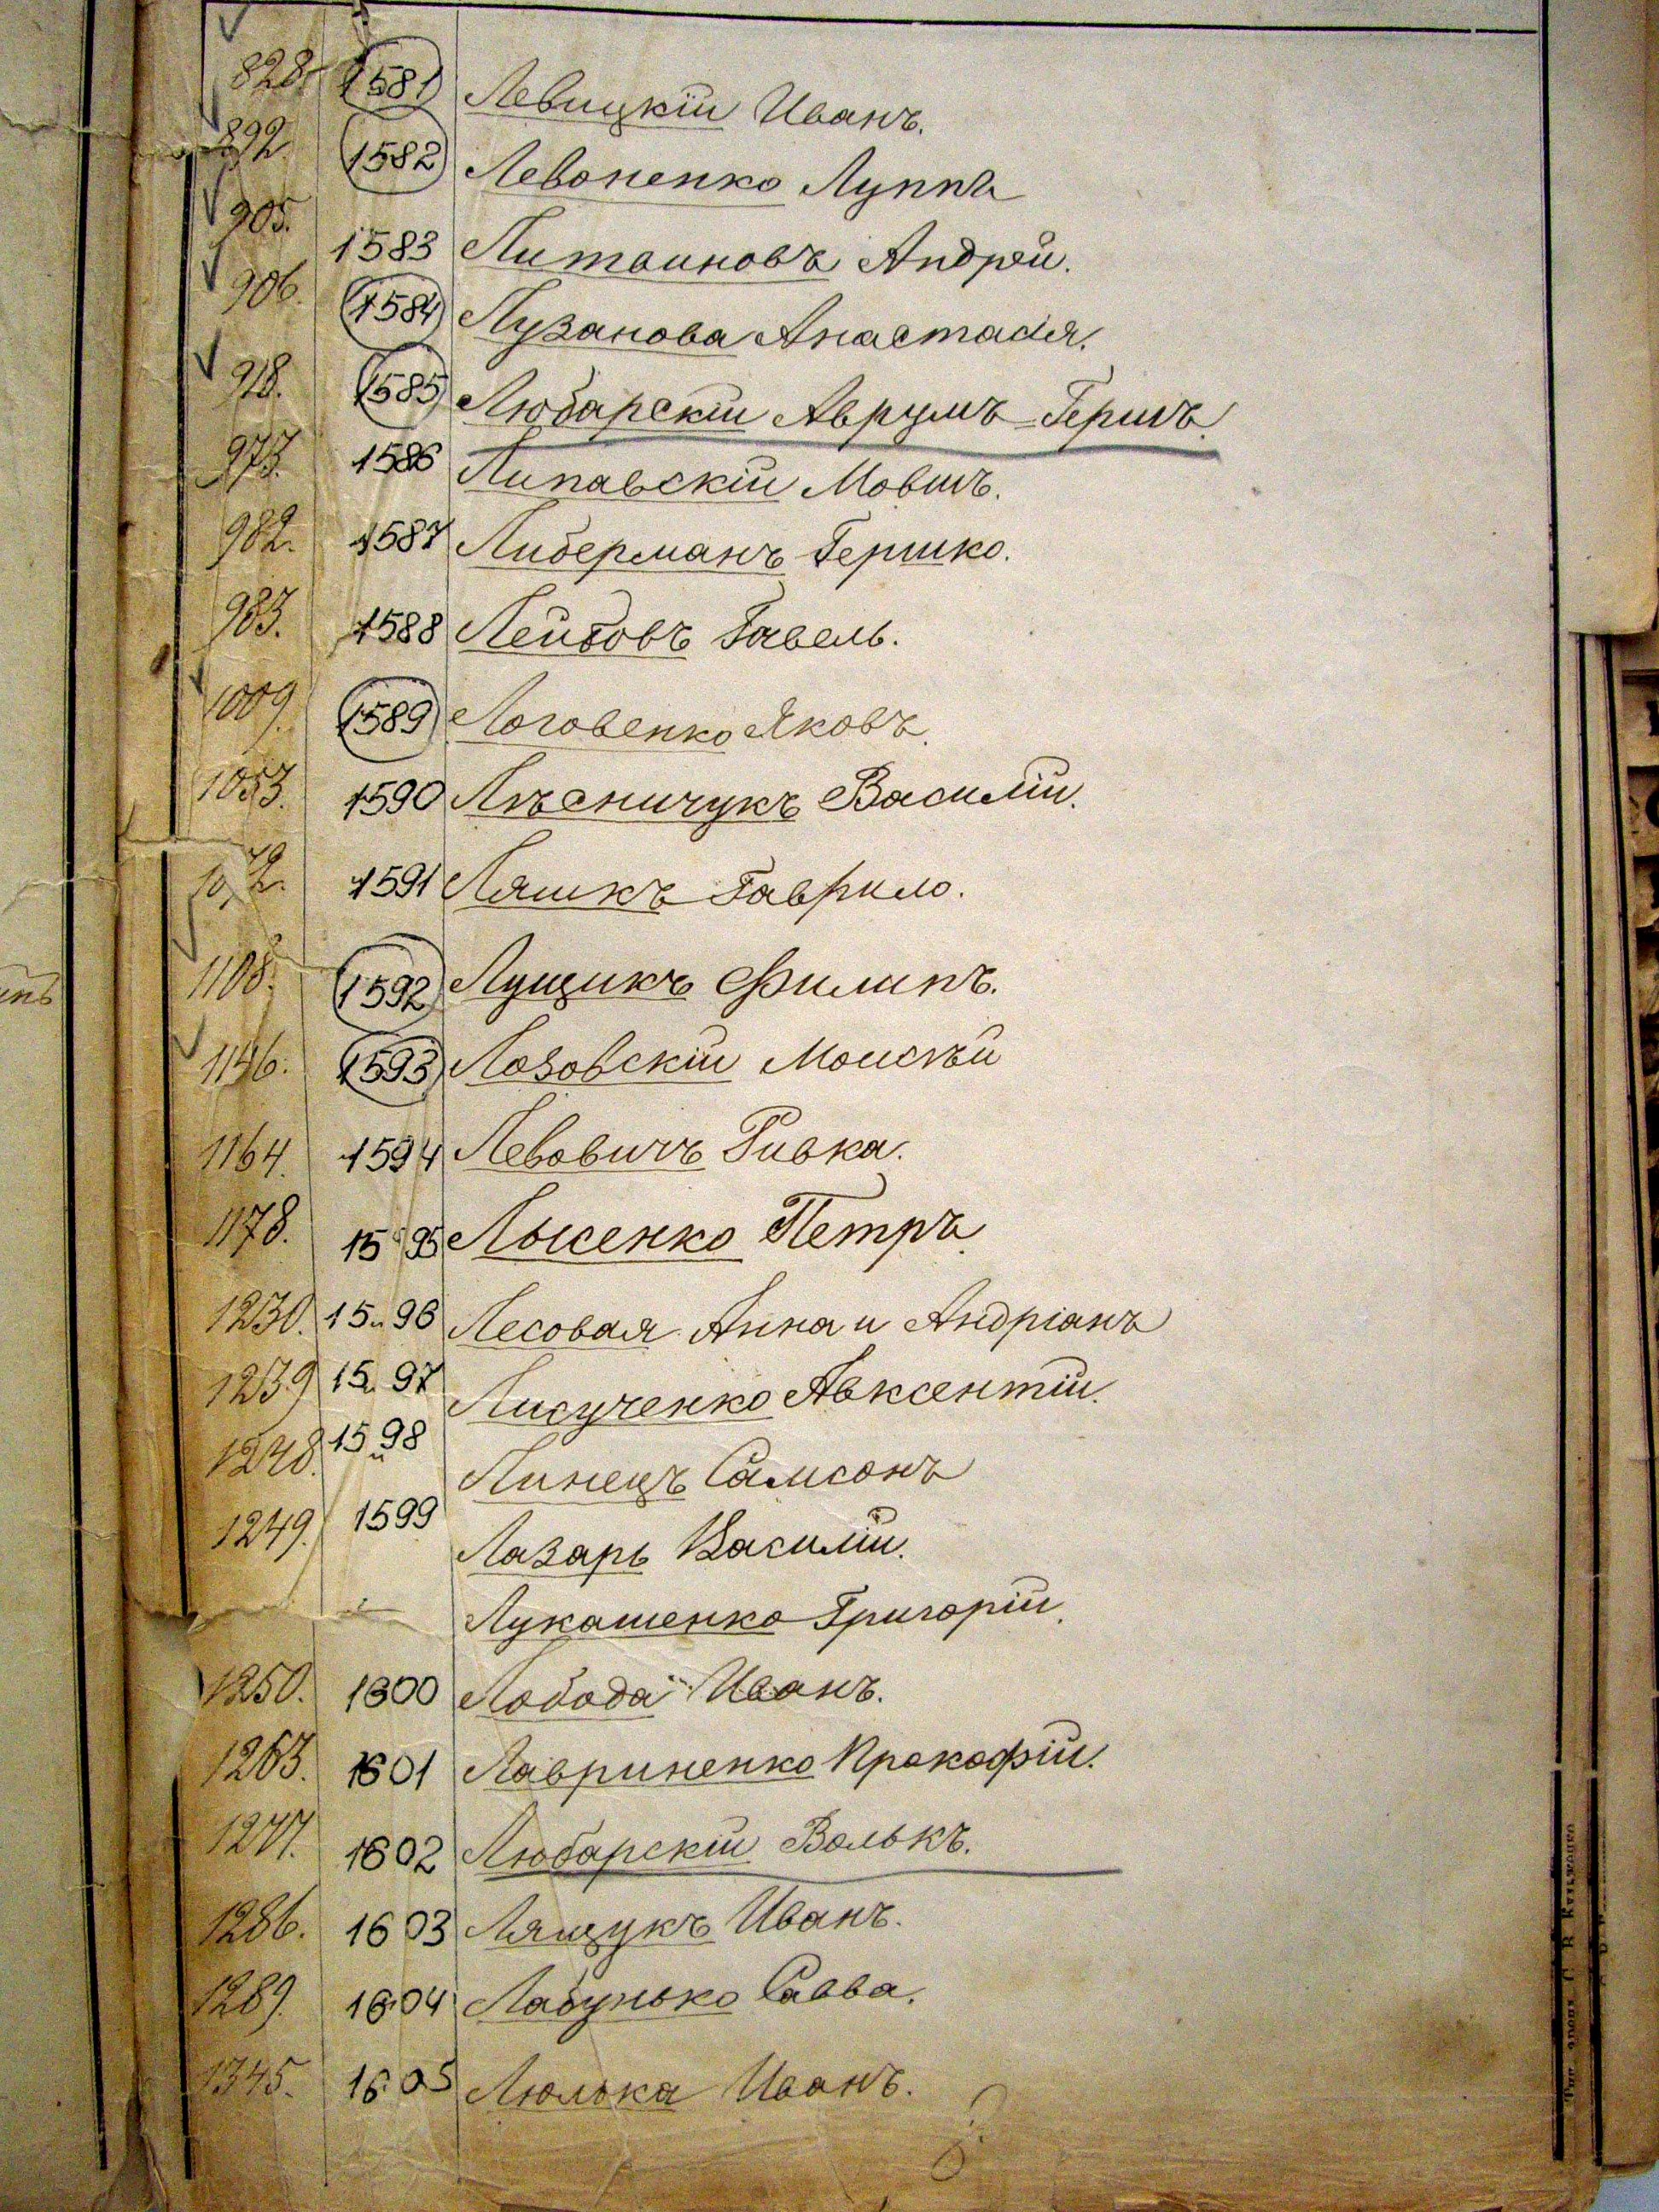 828. 1581 Левицкій Иванъ.
892. 1582 Левоненко Луппъ
905. 1583 Литвиновъ Андрей.
906. 1584 Лузанова Анастасія.
918. 1585 Любарскій Аврумъ-Гершъ.
973. 1586 Липавскій Мовшъ.
982. 1587 Либерманъ Гершко.
983. 1588 Лейбовъ Бавель.
1009. 1589 Логовенко Яковъ.
1053. 1590 Лѣсничукъ Василій.
1072. 1591 Ляшкъ Гаврило.
1108. 1592 Лущикъ Филипъ.
1146. 1593 Лозовскій Моисѣй
1164. 1594 Левовичъ Ривка.
1178. 1595 Лысенко Петръ.
1230. 1596 Лесовая Анна и Андріанъ
1239 1597 Лисученко Авксентій.
1248. 1598 Линецъ Самсонъ
1249. 1599 Лазарь Василій.
Лукашенко Григорій.
1250. 1600 Лобода Иванъ.
1263. 1601 Лавриненко Прокофій.
1277. 1602 Любарскій Волькъ.
1286. 1603 Лящукъ Иванъ.
1289. 1604 Лабунько Савва.
1345. 1605 Люлька Иванъ.